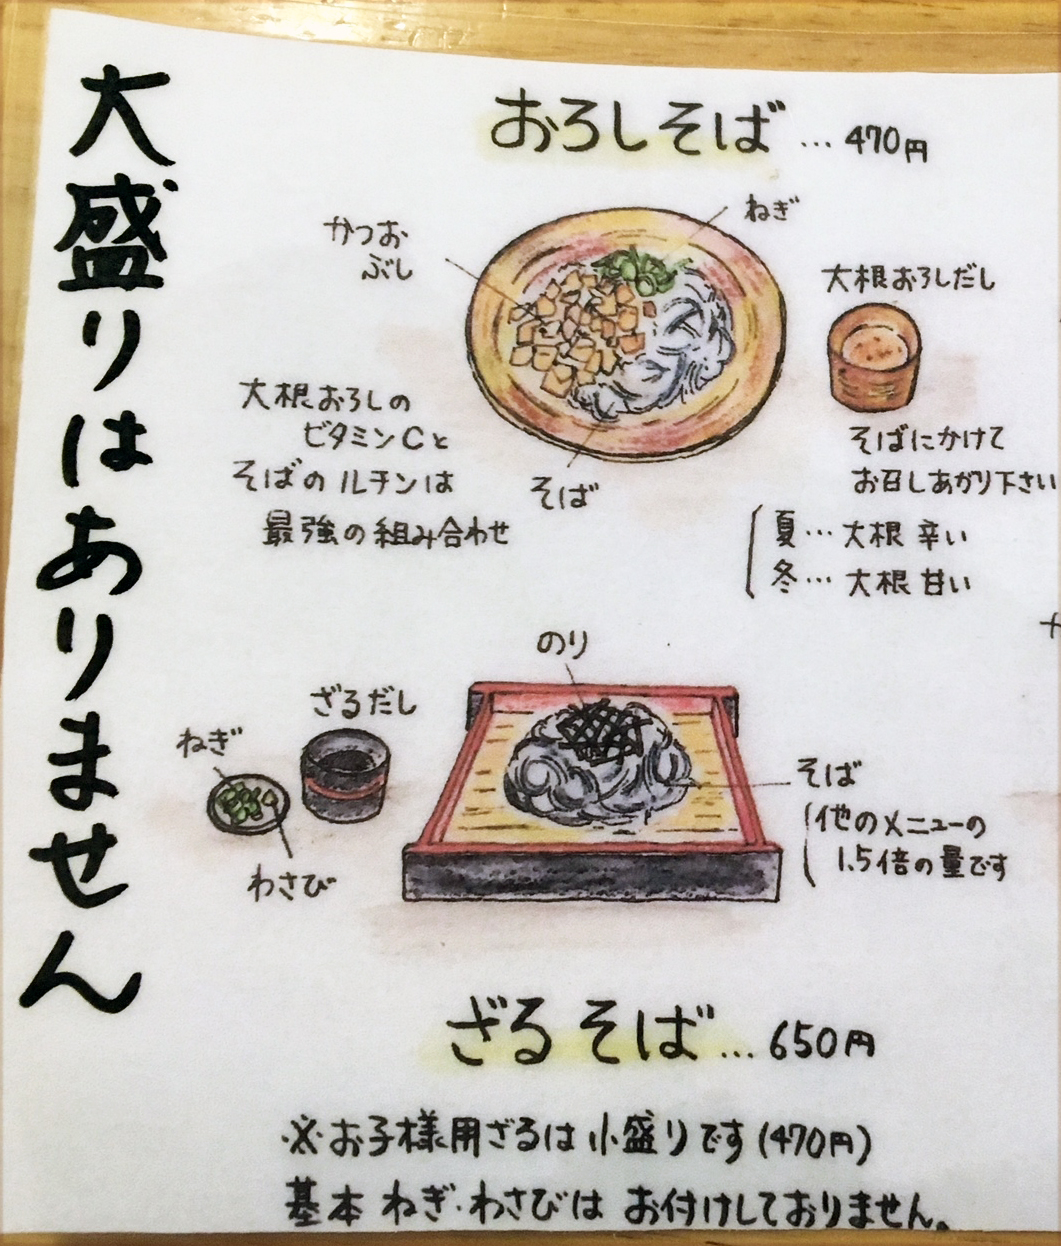 大盛りはありません
おろしそば…470円
ねぎ
かつお
ぶし
大根おろしだし
大根おろしの
ビタミンCと
そばのルチンは
最強の組み合わせ
そば
そばにかけて
お召しあがり下さい
夏…大根 辛い
冬…大根 甘い
のり
ざるだし
ねぎ
わさび
そば
他のメニューの
1.5倍の量です
ざるそば…650円
※お子様用ざるは小盛りです(470円)
基本 ねぎ・わさびは お付けしておりません。